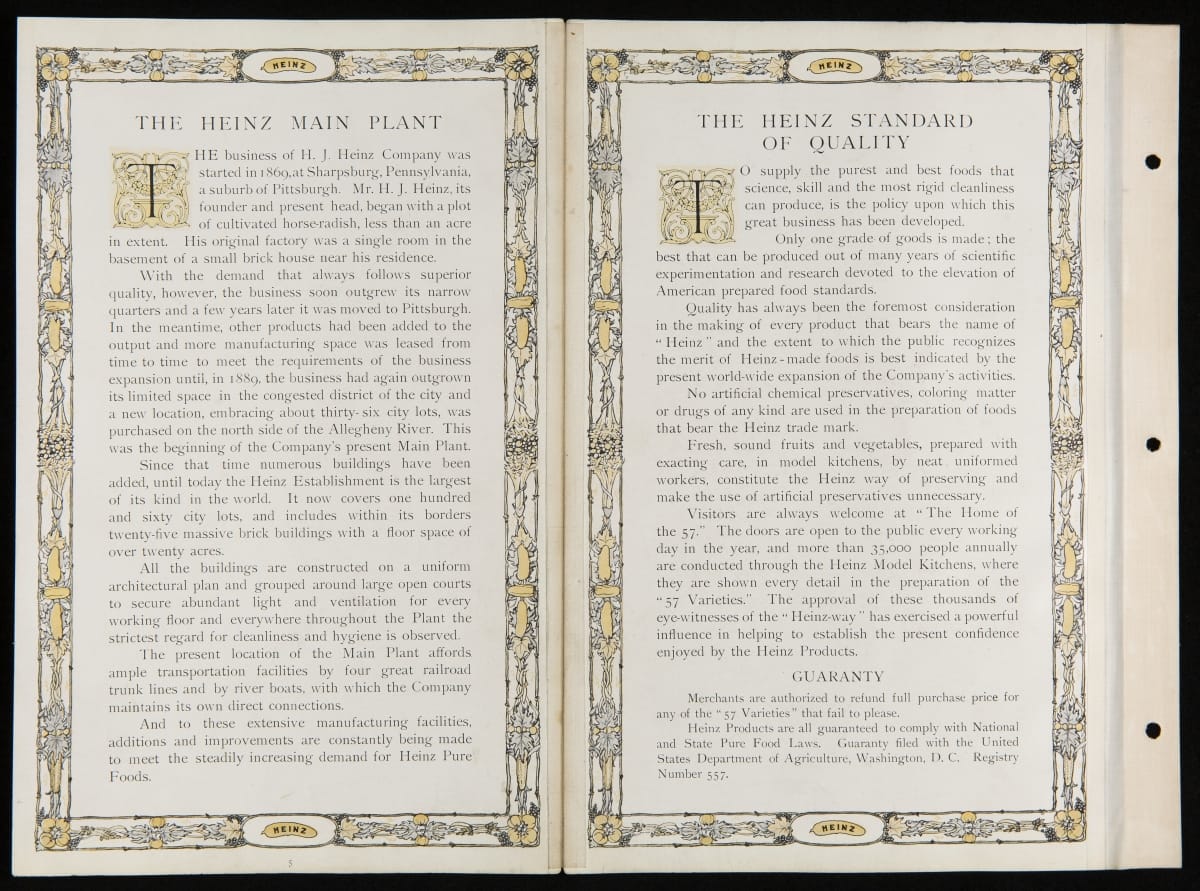 HEINZ
THE HEINZ MAIN PLANT
THE business of H. J. Heinz Company was
started in 1869, at Sharpsburg, Pennsylvania,
a suburb of Pittsburgh. Mr. H. J. Heinz, its
founder and present head, began with a plot
of cultivated horse-radish, less than an acre
in extent. His original factory was a single room in the
basement of a small brick house near his residence.
With the demand that always follows superior
quality, however, the business soon outgrew its narrow
quarters and a few years later it was moved to Pittsburgh.
In the meantime, other products had been added to the
output and more manufacturing space was leased from
time to time to meet the requirements of the business
expansion until, in 1889, the business had again outgrown
its limited space in the congested district of the city and
a new location, embracing about thirty-six city lots, was
purchased on the north side of the Allegheny River. This
was the beginning of the Company's present Main Plant.
Since that time numerous buildings have been
added, until today the Heinz Establishment is the largest
of its kind in the world. It now covers one hundred
and sixty city lots, and includes within its borders
twenty-five massive brick buildings with a floor space of
over twenty acres.
All the buildings are constructed on a uniform
architectural plan and grouped around large open courts
to secure abundant light and ventilation for every
working floor and everywhere throughout the Plant the
strictest regard for cleanliness and hygiene is observed.
The present location of the Main Plant affords
ample transportation facilities by four great railroad
trunk lines and by river boats, with which the Company
maintains its own direct connections.
And to these extensive manufacturing facilities,
additions and improvements are constantly being made
to meet the steadily increasing demand for Heinz Pure
Foods.
HEINZ
5
HEINZ
THE HEINZ STANDARD
OF QUALITY
TO supply the purest and best foods that
science, skill and the most rigid cleanliness
can produce, is the policy upon which this
great business has been developed.
Only one grade of goods is made; the
best that can be produced out of many years of scientific
experimentation and research devoted to the elevation of
American prepared food standards.
Quality has always been the foremost consideration
in the making of every product that bears the name of
"Heinz" and the extent to which the public recognizes
the merit of Heinz-made foods is best indicated by the
present world-wide expansion of the Company's activities.
No artificial chemical preservatives, coloring matter
or drugs of any kind are used in the preparation of foods
that bear the Heinz trade mark.
Fresh, sound fruits and vegetables, prepared with
exacting care, in model kitchens, by neat uniformed
workers, constitute the Heinz way of preserving and
make the use of artificial preservatives unnecessary.
Visitors are always welcome at "The Home of
the 57." The doors are open to the public every working
day in the year, and more than 35,000 people annually
are conducted through the Heinz Model Kitchens, where
they are shown every detail in the preparation of the
"57 Varieties." The approval of these thousands of
eye-witnesses of the "Heinz-way" has exercised a powerful
influence in helping to establish the present confidence
enjoyed by the Heinz Products.
GUARANTY
Merchants are authorized to refund full purchase price for
any of the "57 Varieties" that fail to please.
Heinz Products are all guaranteed to comply with National
and State Pure Food Laws. Guaranty filed with the United
States Department of Agriculture, Washington, D. C. Registry
Number 557.
HEINZ